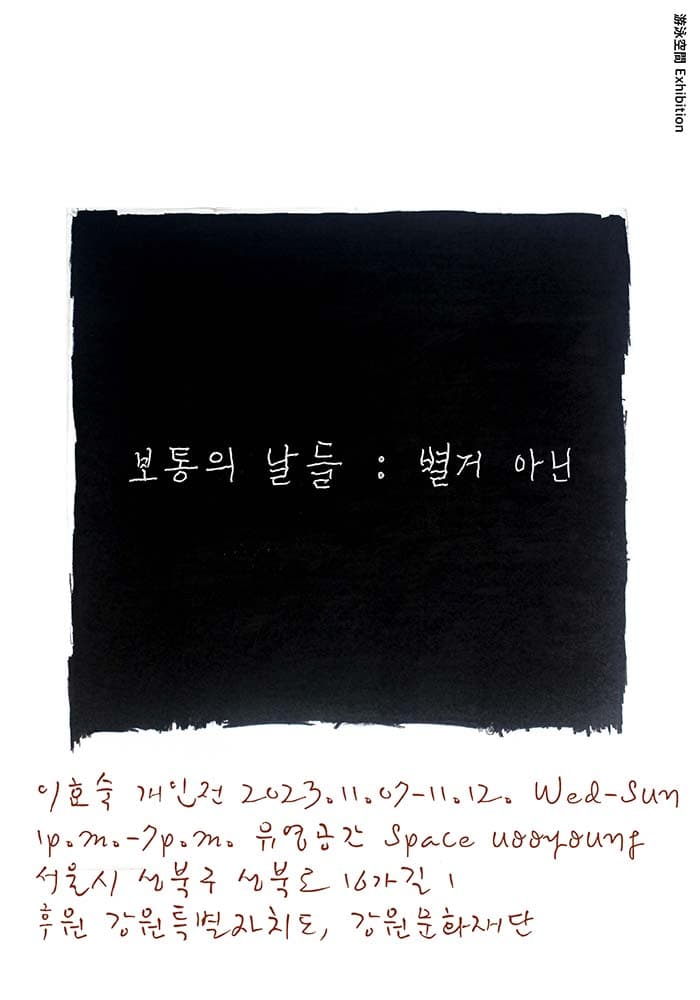 游泳空間 Exhibition
보통의 날들 : 별거 아닌
이효숙 개인전 2023.11.07-11.12. Wed-Sun
1p.m.-7p.m. 유영공간 Space uooyoung
서울시 성북구 성북로 16가길 1
후원 강원특별자치도, 강원문화재단